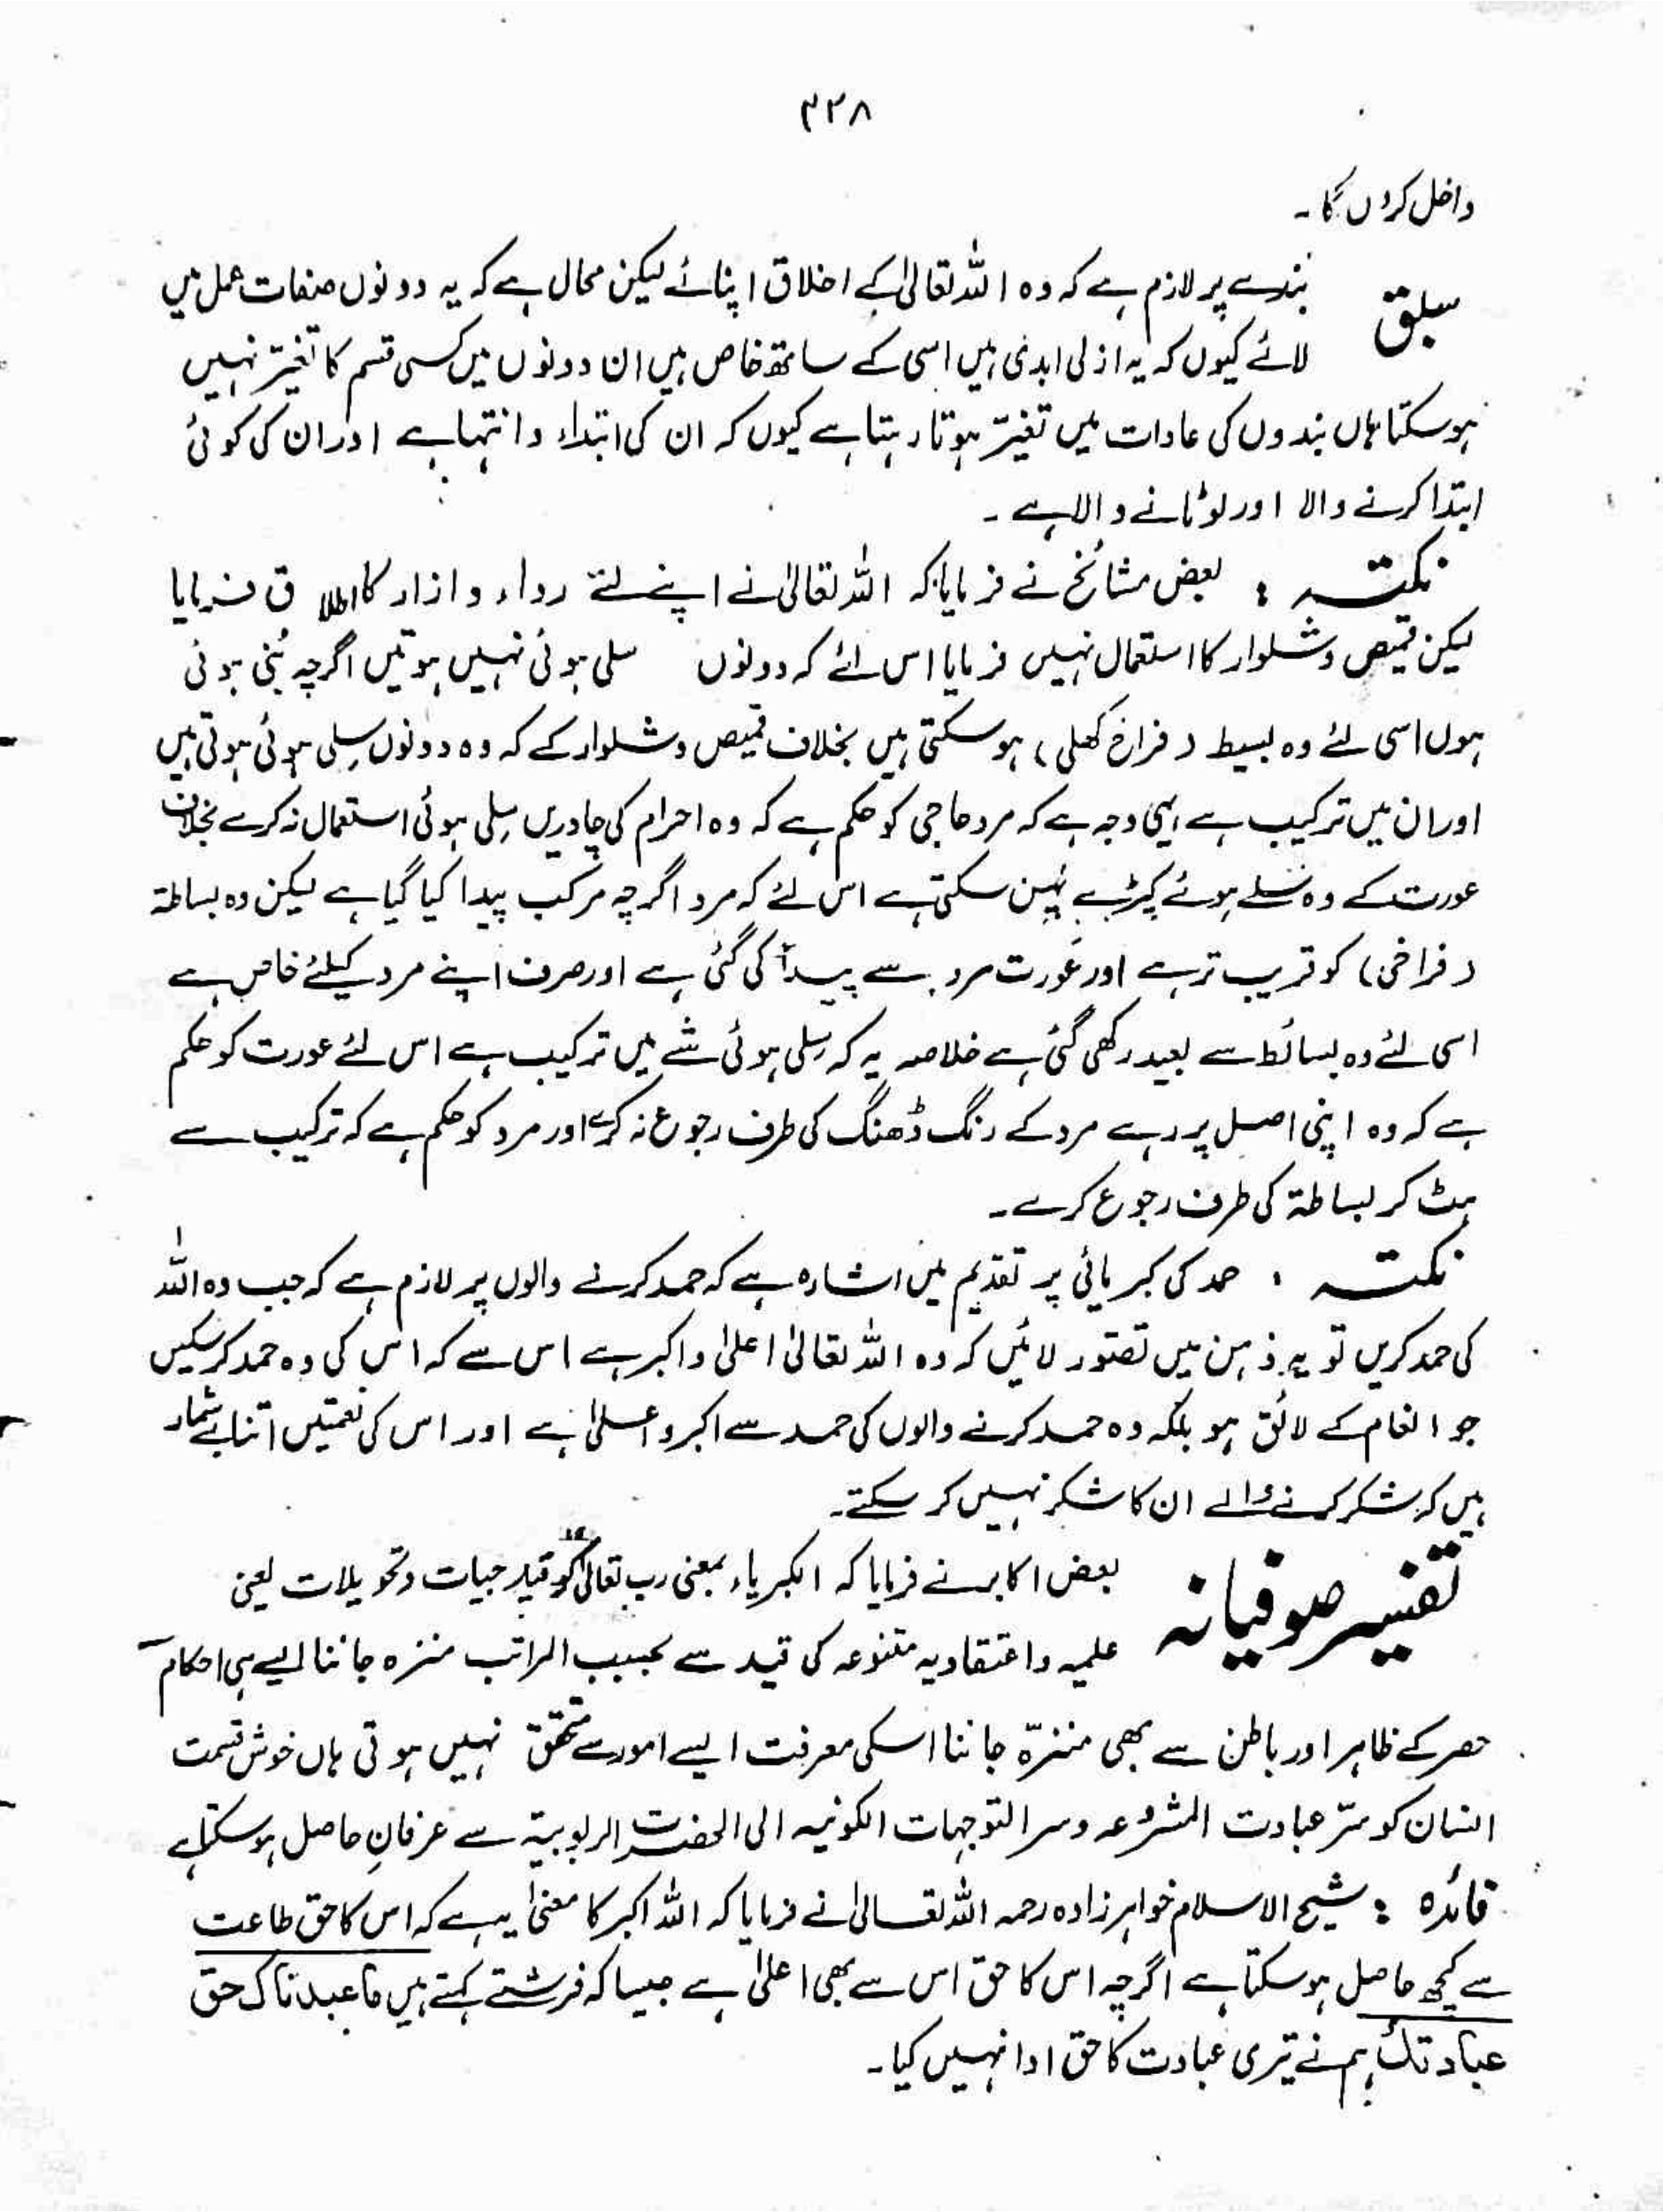 ۳۲۸
داخل کروں گا۔
سبق
بندے پر لازم ہے کہ وہ اللہ تعالیٰ کے اخلاق اپنائے لیکن محال ہے کہ یہ دونوں صفات عمل میں
لائے کیوں کہ یہ ازلی ابدی ہیں اسی کے ساتھ خاص ہیں ان دونوں میں کسی قسم کا تغیّر نہیں
ہوسکتا ہاں بندوں کی عادات میں تغیّر ہوتا رہتا ہے کیوں کہ ان کی ابتداء و انتہا ہے اور ان کی کوئی
ابتدا کرنے والا اور لوٹانے والا ہے ۔
نکتہ : بعض مشائخ نے فرمایا کہ اللہ تعالیٰ نے اپنے لئے رداء و ازار کا اطلاق فرمایا
لیکن قمیص و شلوار کا استعمال نہیں فرمایا اس لئے کہ دونوں سلی ہوئی نہیں ہوتیں اگرچہ بُنی ہوئی
ہوں اسی لئے وہ بسیط (فراخ کھلی) ہوسکتی ہیں بخلاف قمیص و شلوار کے کہ وہ دونوں سِلی ہوئی ہوتی ہیں
اور ان میں ترکیب ہے یہی وجہ ہے کہ مرد حاجی کو حکم ہے کہ وہ احرام کی چادریں سِلی ہوئی استعمال نہ کرے بخلاف
عورت کے وہ سلے ہوئے کپڑے پہن سکتی ہے اس لئے کہ مرد اگرچہ مرکب پیدا کیا گیا ہے لیکن وہ بساطۃ
(فراخی) کو قریب تر ہے اور عورت مرد سے پیدا کی گئی ہے اور صرف اپنے مرد کیلئے خاص ہے
اسی لئے وہ بسائط سے بعید رکھی گئی ہے خلاصہ یہ کہ سِلی ہوئی شے میں ترکیب ہے اس لئے عورت کو حکم
ہے کہ وہ اپنی اصل پر رہے مرد کے رنگ ڈھنگ کی طرف رجوع نہ کرے اور مرد کو حکم ہے کہ ترکیب سے
ہٹ کر بساطۃ کی طرف رجوع کرے۔
نکتہ : حمد کی کبریائی پر تقدیم میں اشارہ ہے کہ حمد کرنے والوں پر لازم ہے کہ جب وہ اللہ
کی حمد کریں تو یہ ذہن میں تصوّر لائیں کہ وہ اللہ تعالیٰ اعلیٰ و اکبر ہے اس سے کہ اس کی وہ حمد کرسکیں
جو انعام کے لائق ہو بلکہ وہ حمد کرنے والوں کی حمد سے اکبر و اعلیٰ ہے اور اس کی نعمتیں اتنا بے شمار
ہیں کہ شکر کرنے والے ان کا شکر نہیں کر سکتے۔
تفسیر صوفیانہ
بعض اکابر نے فرمایا کہ الکبریاء بمعنی رب تعالیٰ کو قید جہات و تحویلات یعنی
علمیہ و اعتقادیہ متنوعہ کی قید سے بحسب المراتب منزہ جاننا ایسے ہی احکام
حصر کے ظاہر اور باطن سے بھی منزّہ جاننا اسکی معرفت ایسے امور سے متحقق نہیں ہوتی ہاں خوش قسمت
انسان کو سرّ عبادت المشروعہ و سر التوجہات الکونیہ الی الحضرت الربوبیۃ سے عرفانِ حاصل ہوسکتا ہے
فائدہ : شیخ الاسلام خواہر زادہ رحمہ اللہ تعالیٰ نے فرمایا کہ اللہ اکبر کا معنیٰ یہ ہے کہ اس کا حق طاعت
سے کچھ حاصل ہوسکتا ہے اگرچہ اس کا حق اس سے بھی اعلیٰ ہے جیسا کہ فرشتے کہتے ہیں ما عبدناک حق
عبادتک ہم نے تیری عبادت کا حق ادا نہیں کیا۔